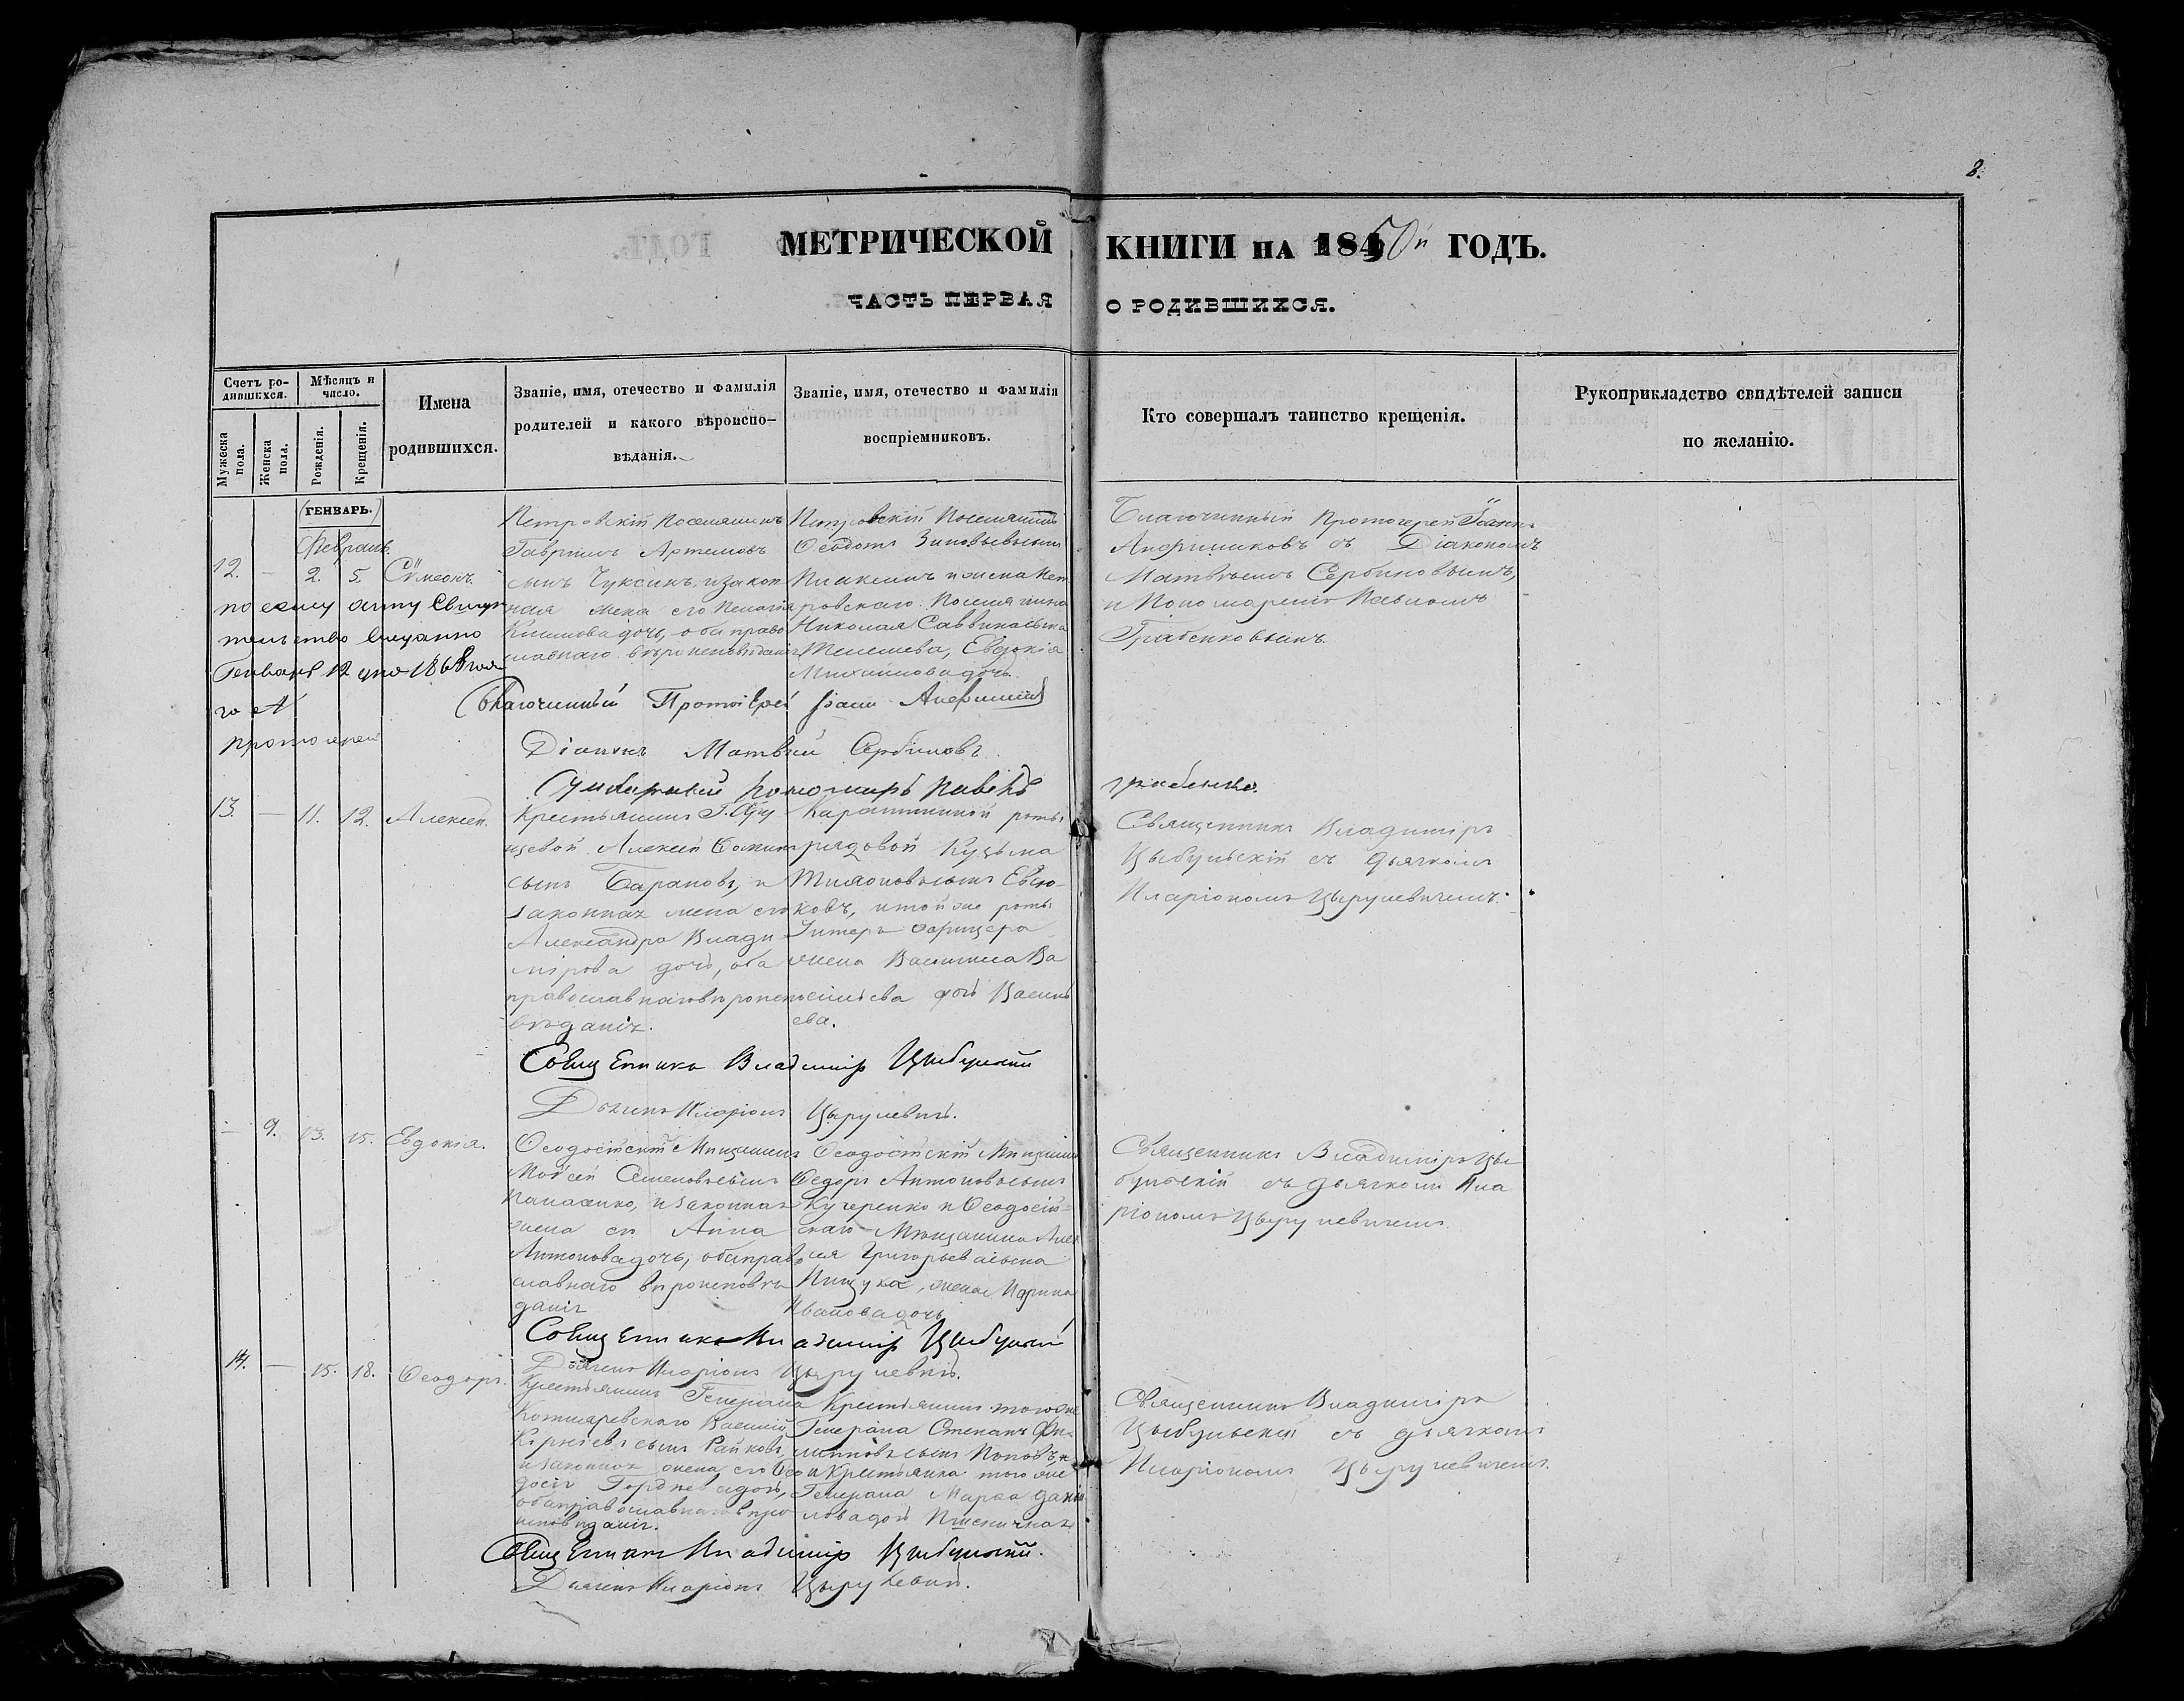 8.
МЕТРИЧЕСКОЙ КНИГИ НА 1850й ГОДЪ.
ЧАСТЬ ПЕРВАЯ О РОДИВШИХСЯ.
Счетъ родившихся.
Мужеска пола.
Женска пола.
Мѣсяцъ и число.
Рожденія.
Крещенія.
Имена
родившихся.
Званіе, имя, отечество и фамилія
родителей и какого вѣроиспо-
вѣданія.
Званіе, имя, отечество и фамилія
воспріемниковъ.
Кто совершалъ таинство крещенія.
Рукоприкладство свидѣтелей записи
по желанію.
ГЕНВАРЬ.
Февраль.
12. — 2. 5. Сѵмеонъ.
Петровскій Поселянинъ
Гавріилъ Артемовъ
сынъ Чуксинъ, и закон
ная жена его Пелагія
дочь, оба право
славнаго вѣроисповѣданія
Петровскій Поселянинъ
Ѳеодотъ Зиновьевъ сынъ
и жена Пет
ровскаго Поселянина
Николая Саввина сына
Телешева, Евдокія
Михайлова дочь.
Благочинный Протоіерей Іоаннъ
Анфимиковъ съ Діакономъ
Матвѣемъ Сербиновымъ,
и Пономаремъ Павломъ
Грабенковымъ.
по сему акту Свидѣ
тельство выдано
Генваря 12 дня 186
го №
протоіерей
Благочинный Протоіерей Іоаннъ
Діаконъ Матвей Сербиновъ
Пономарь Павелъ Грабенко.
13. — 11. 12. Алексей.
Крестьянинъ Г.
щевой Алексей
сынъ Барановъ, и
законная жена его
Александра Влади
мірова дочь, оба
православнаго вѣроиспо
вѣданія.
Карантинной роты
рядовой Кузьма
сынъ Евсю-
ковъ, и той же роты
Унтеръ-офицера
жена Василиса Ва
сильева дочь
ева.
Священникъ Владиміръ
Цыбульскій съ дьячкомъ
Иларіономъ Цырулевичемъ.
Священникъ Владиміръ Цибульскій
Дьячекъ Иларіонъ Цырулевичъ.
— 9. 13. 15. Евдокія.
Ѳеодосійскій Мѣщанинъ
Моѵсей Семеновъ сынъ
Панасенко, и законная
жена его Анна
Антонова дочь, оба право
славнаго вѣроисповѣ
данія
Ѳеодосійскій Мѣщанинъ
Ѳедоръ Антоновъ сынъ
Кучеренко и Ѳеодосій-
скаго Мѣщанина Алек
сея Григорьева сына
Пищука, жена Ирина
Иванова дочь
Священникъ Владиміръ Цы
бульскій съ дьячкомъ Ила
ріономъ Цырулевичемъ.
Священникъ Владиміръ Цибульскій
Дьячекъ Иларіонъ Цырулевичъ.
14. — 15. 18. Ѳеодоръ.
Крестьянинъ Генерала
Котляревскаго Василій
Корнѣевъ сынъ Райковъ
и законная жена его Ѳео
досія Гордѣева дочь,
оба православнаго вѣро
исповѣданія.
Крестьянинъ того же
Генерала Степанъ Фи-
липповъ сынъ Поповъ,
и Крестьянка того же
Генерала Марѳа Дани
лова дочь Пшеничная
Священникъ Владиміръ
Цыбульскій съ дьячкомъ
Иларіономъ Цырулевичемъ.
Священникъ Владиміръ Цибульскій.
Дьячекъ Иларіонъ Цырулевичъ.